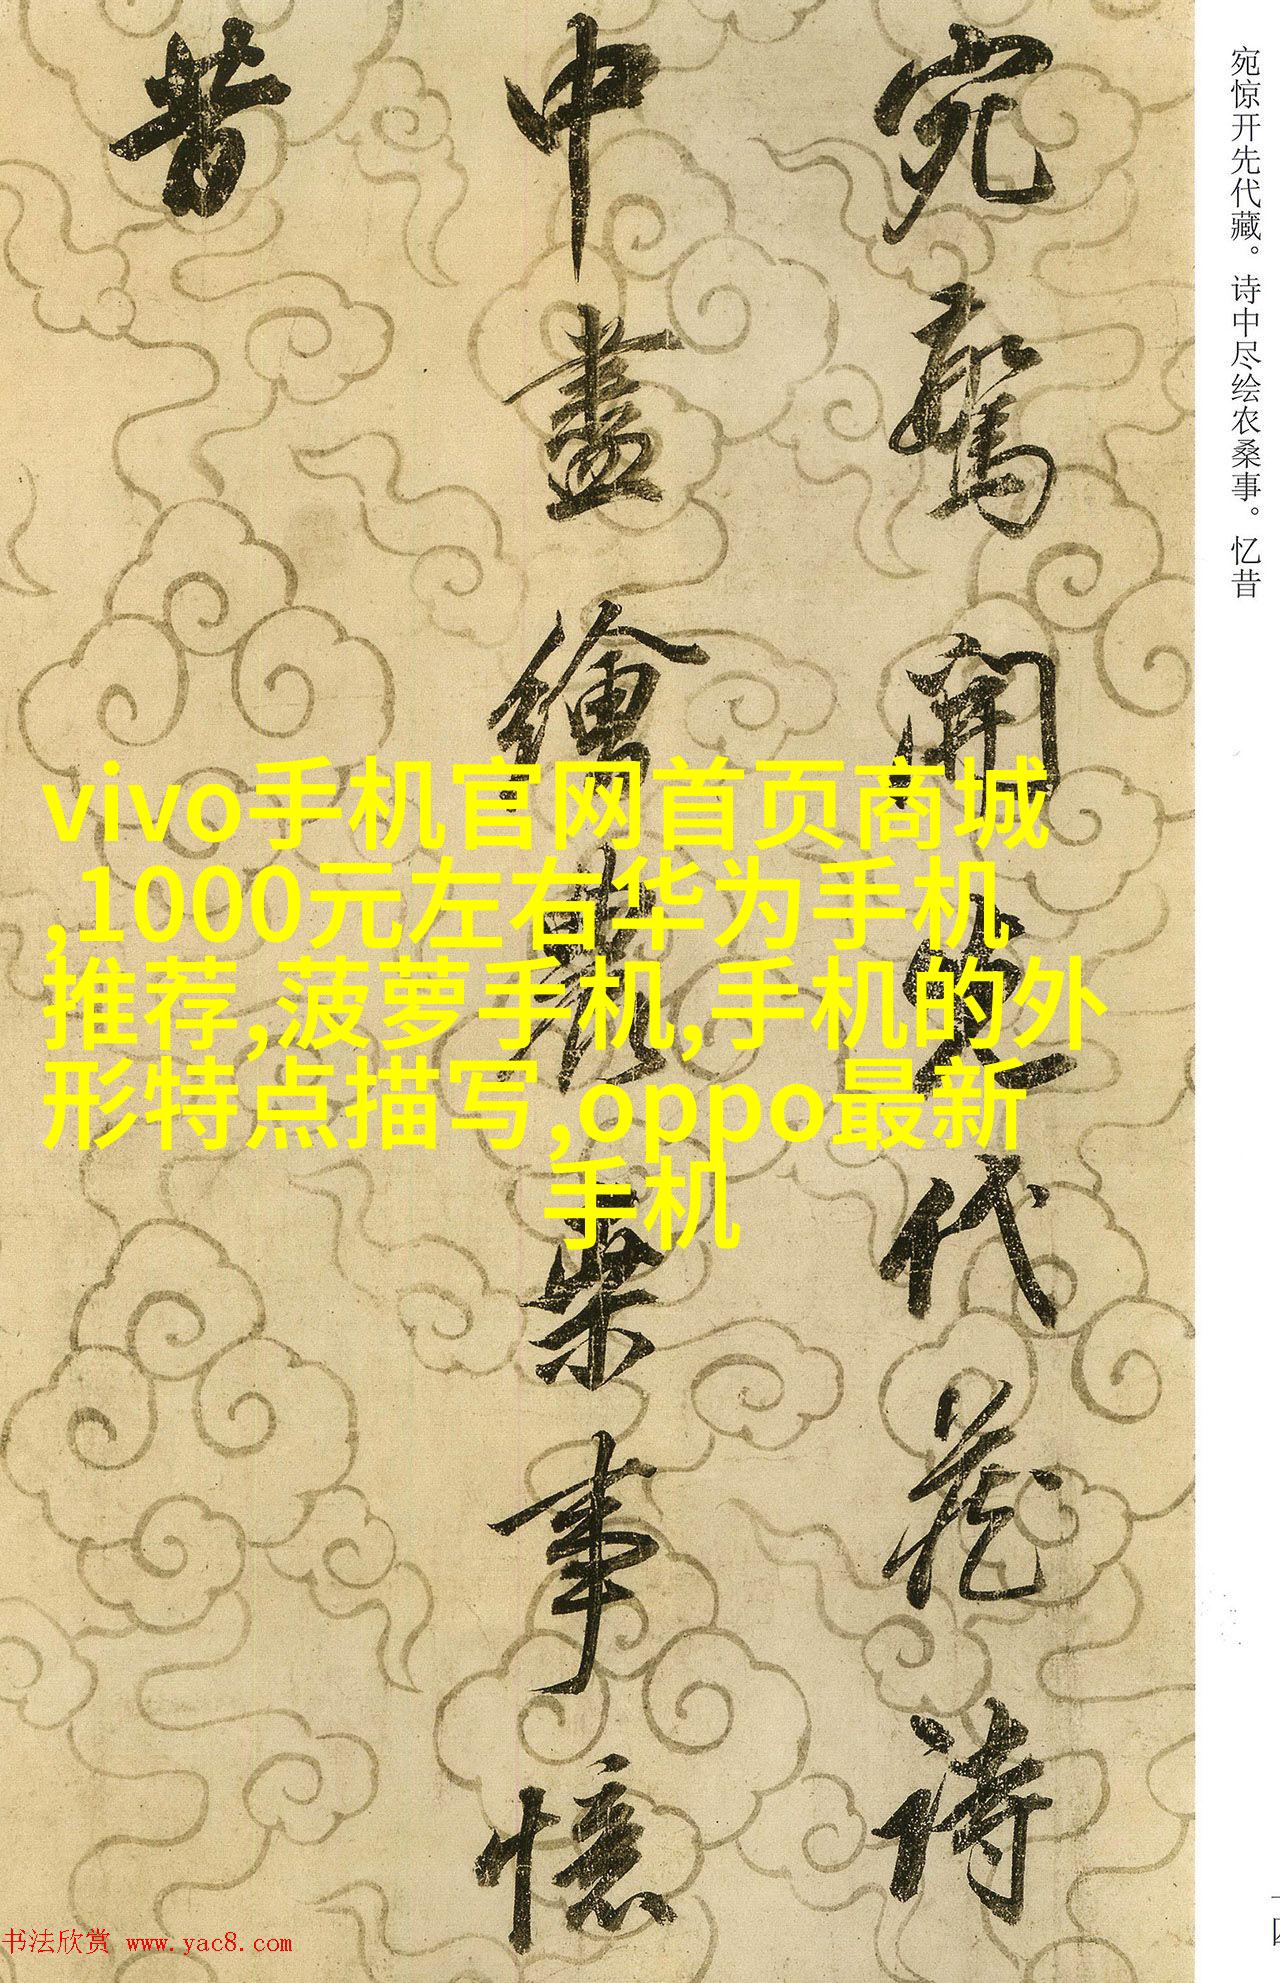 宛驚開先代藏诗
中盡繪農桒事憶
昔
宛惊开先代藏。诗中尽绘农桑事。忆昔
vivo手机官网首页商城
,1000元左右华为手机
推荐,菠萝手机,手机的外
形特点描写,oppo最新
手机
书法欣赏 www.yac8.com